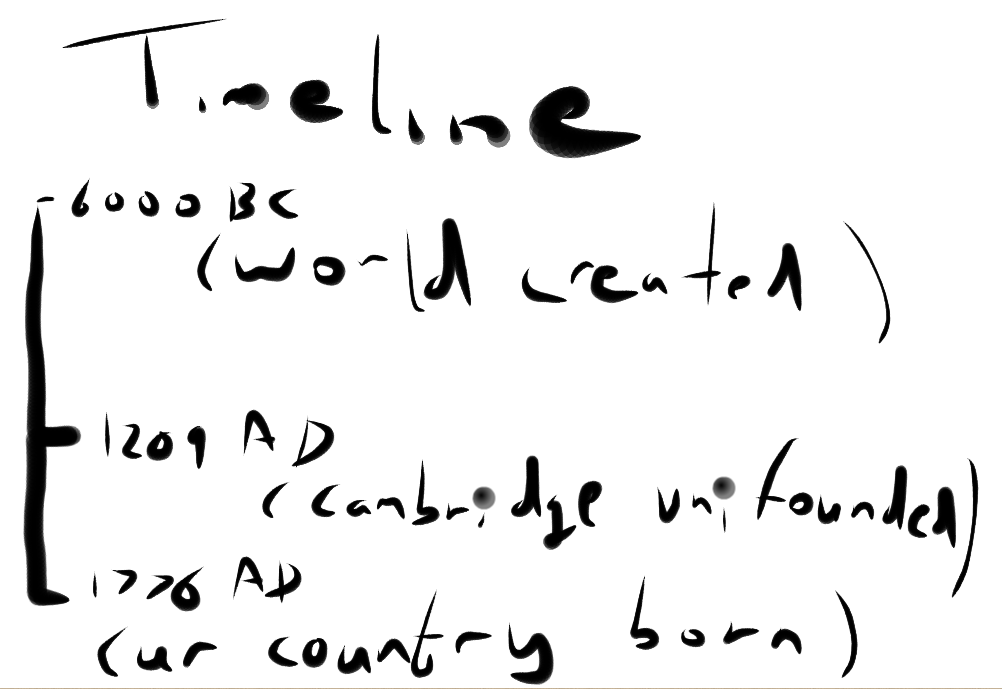 Timeline
6000 BC
(world created)
1209 AD
(cambridge uni founded)
1776 AD
(ur country born)